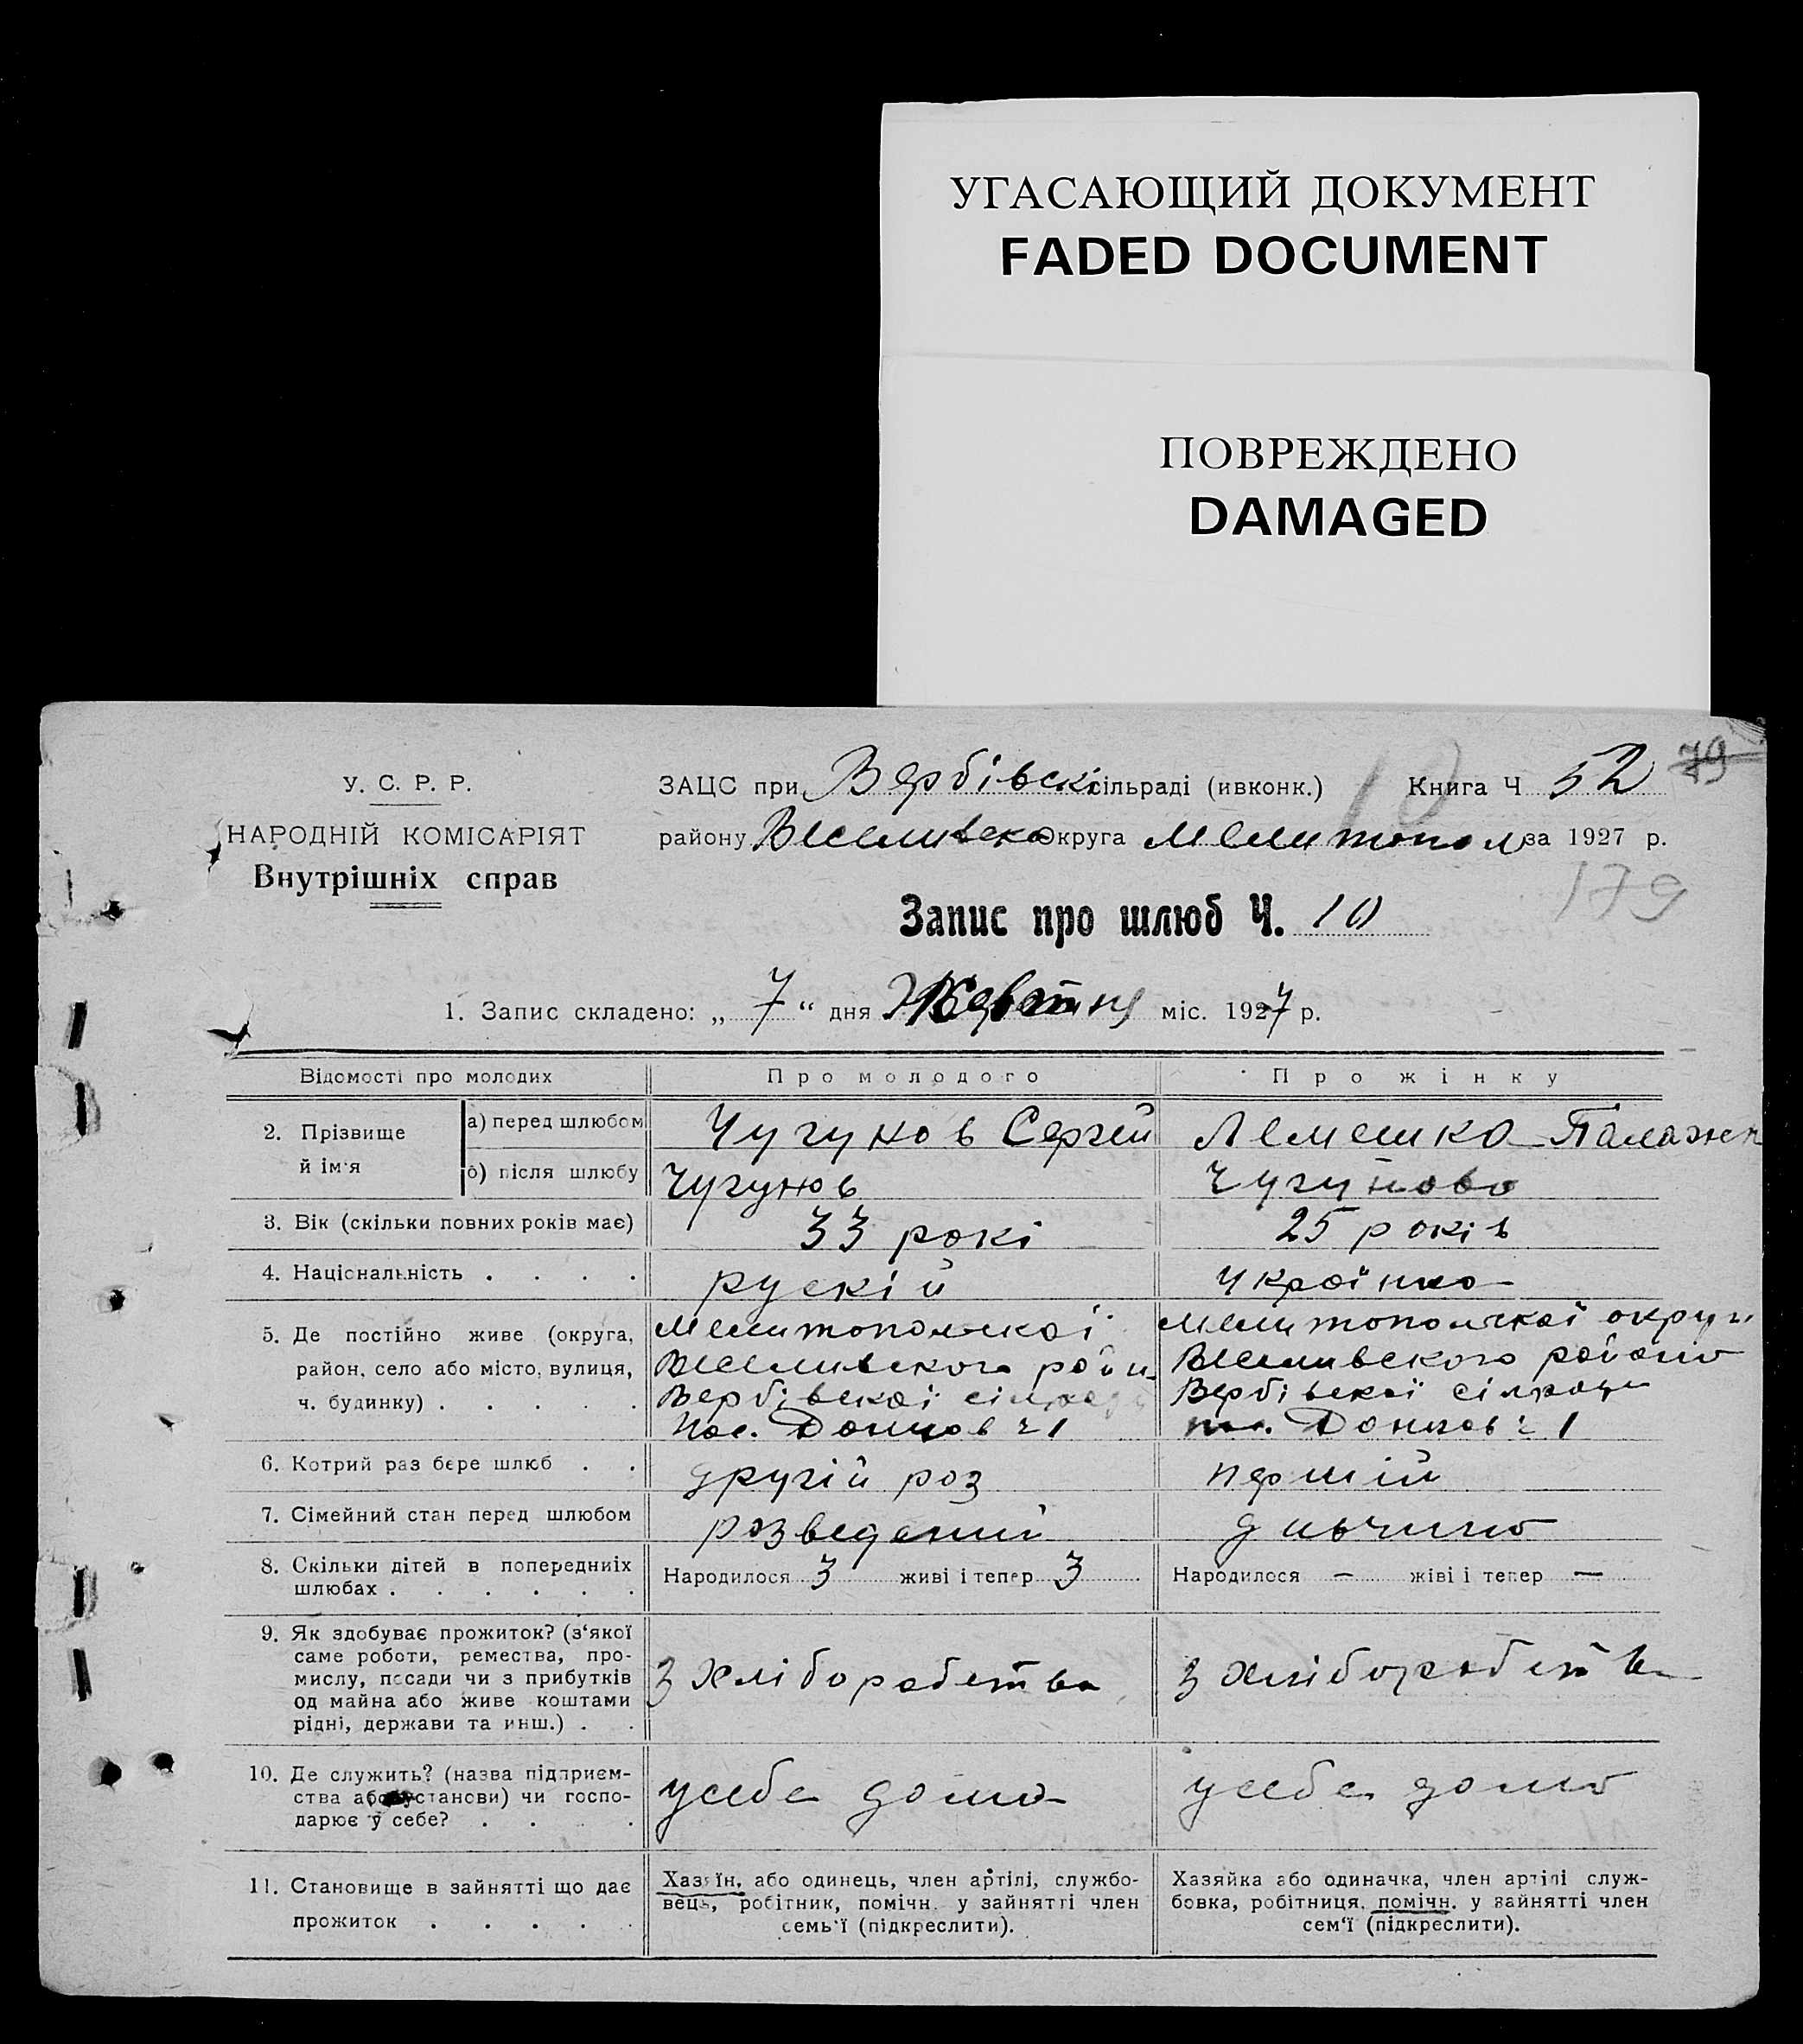 УГАСАЮЩИЙ ДОКУМЕНТ
FADED DOCUMENT
ПОВРЕЖДЕНО
DAMAGED
79
У. С. Р. Р.
НАРОДНІЙ КОМІСАРІЯТ
Внутрішніх справ
ЗАЦС при Вербівскі сільраді (ивконк.) 10 Книга Ч 52
району Веселивско Округа Мелитопол за 1927 р.
179
Запис про шлюб Ч. 10
1. Запис складено: „ 7 “ дня Жовтня міс. 1927 р.
Відомості про молодих Про молодого Про жінку
2. Прізвище й ім'я а) перед шлюбом Чугунов Сергей Лемешко Палажка
б) після шлюбу Чугунов Чугунова
3. Вік (скільки повних років має) 33 рокі 25 років
4. Національність . . . . рускій украінка
5. Де постійно живе (округа, Мелитопольскоі Мелитопольскоі округи
район, село або місто, вулиця, Веселивского райн Веселивского району
ч. будинку) . . . . . Вербівскоі Вербівскоі
пос. Донцов ч 1 Донцов ч 1
6. Котрий раз бере шлюб . . другій роз першій
7. Сімейний стан перед шлюбом розведений дивчина
8. Скільки дітей в попередниіх Народилося 3 живі і тепер 3 Народилося — живі і тепер —
шлюбах . . . . . .
9. Як здобуває прожиток? (з'якої
саме роботи, ремества, про-
мислу, посади чи з прибутків з хліборобства з хліборобства
од майна або живе коштами
рідні, держави та инш.) . .
10. Де служить? (назва підприєм-
ства або установи) чи госпо- усебе дома усебе дома
дарює у себе? . . .
11. Становище в зайнятті що дає Хазяїн, або одинець, член артілі, службо- Хазяйка або одиначка, член артілі служ-
прожиток . . . . . вець, робітник, помічн. у зайнятті член бовка, робітниця, помічн. у зайнятті член
семь'ї (підкреслити). сем'ї (підкреслити).